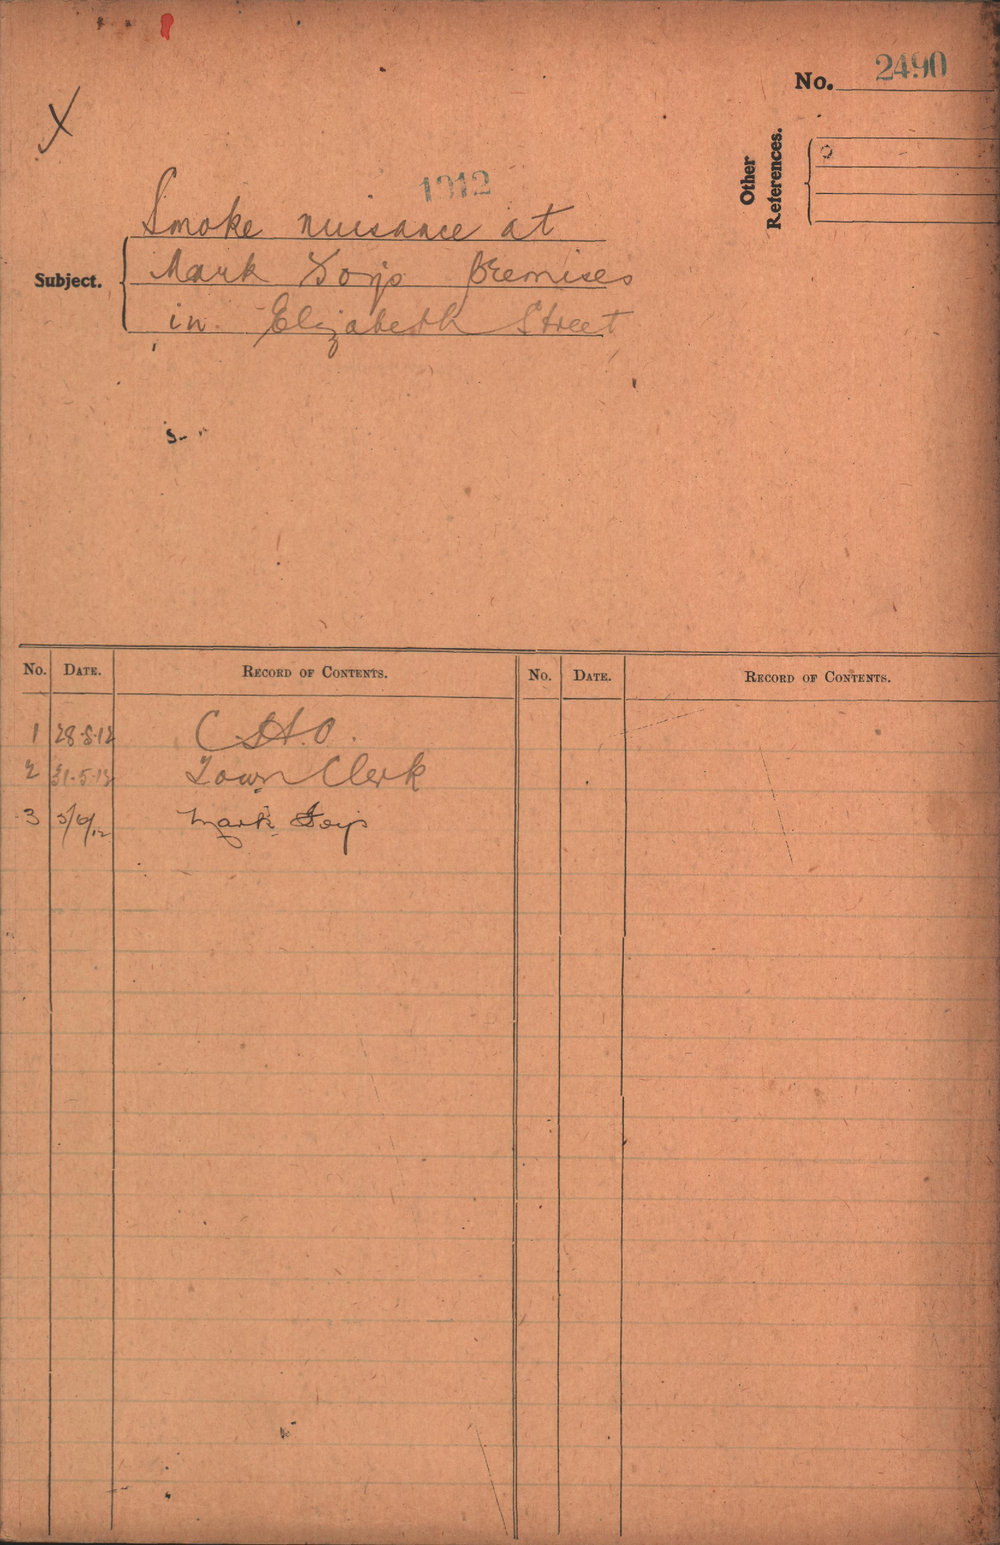 No. 2490
X
Other References.
1912
Smoke nuisance at
Subject. Mark Foys Premises
in Elizabeth Street
No. DATE. RECORD OF CONTENTS. No. DATE. RECORD OF CONTENTS.
1 28.5.12 C.H.O.
2 31.5.12 Town Clerk
3 5/6/12 Mark Foys